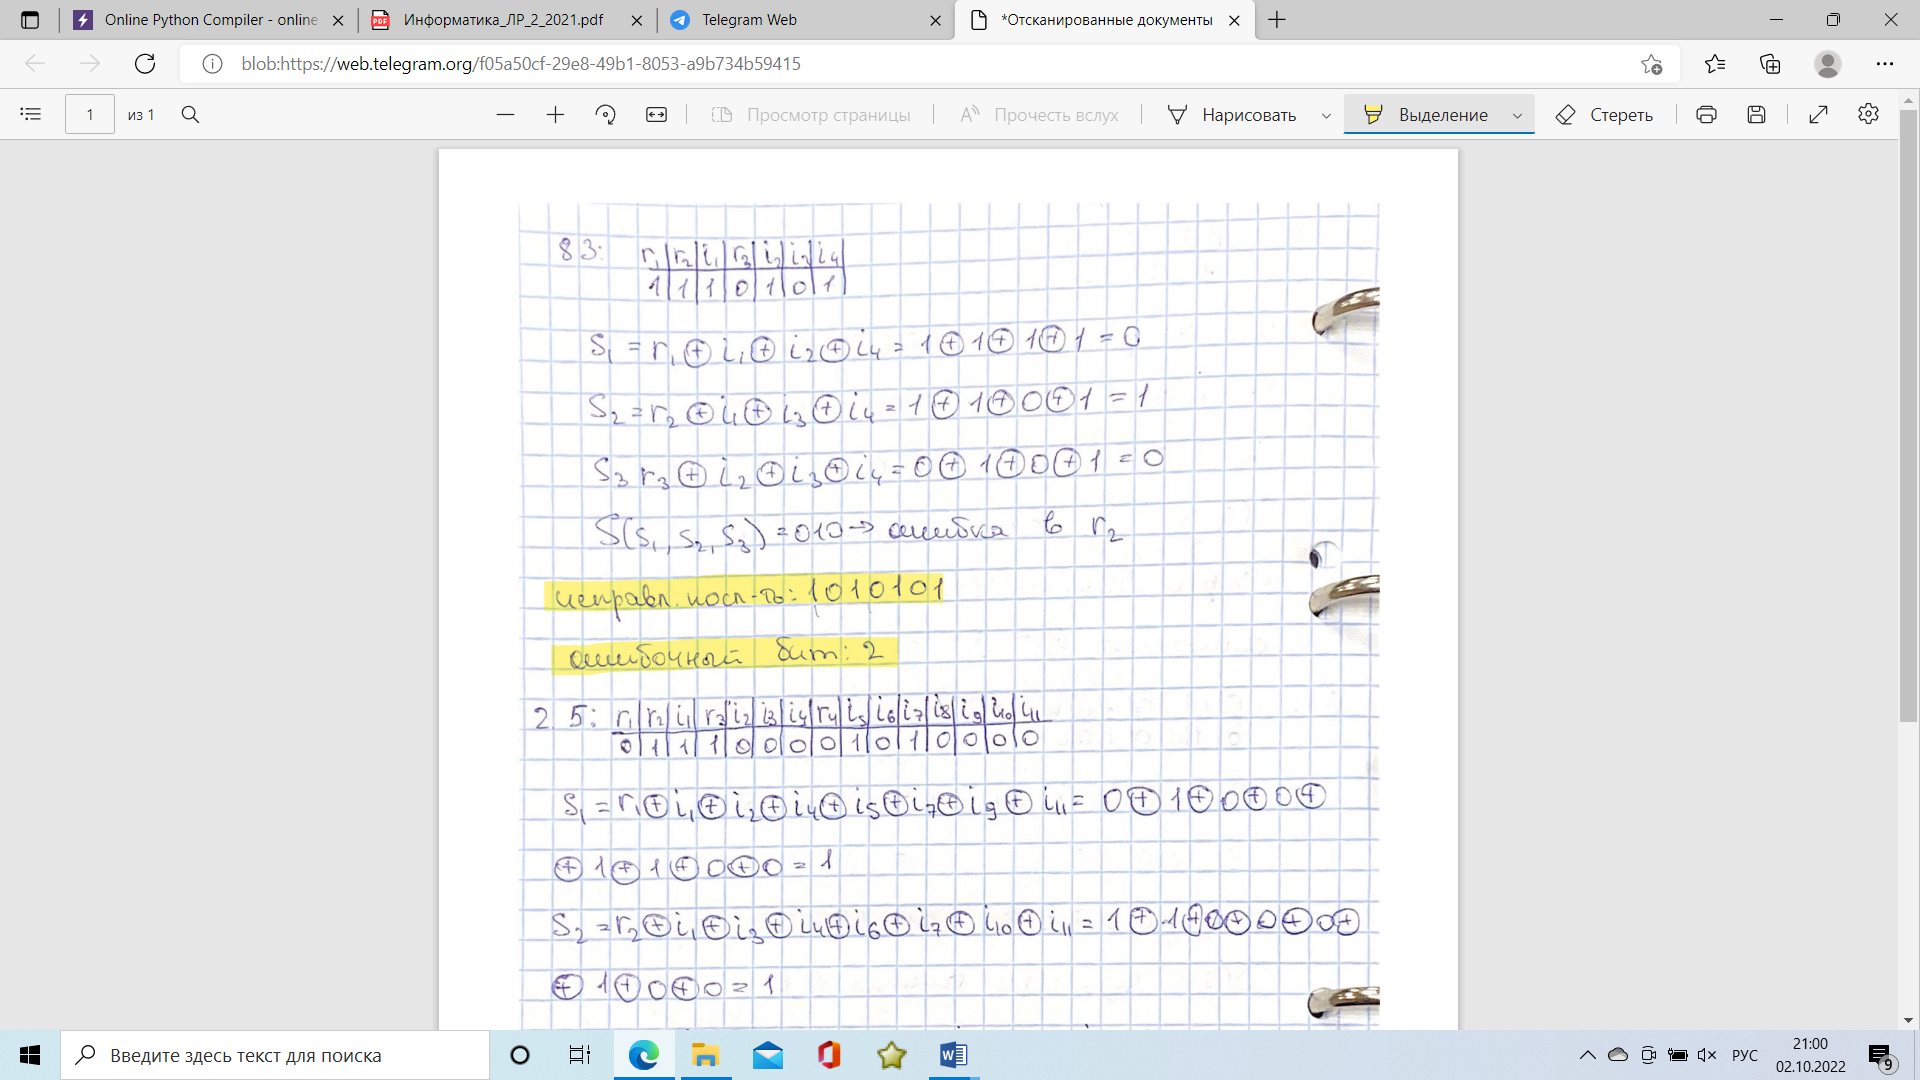 Online Python Compiler - online
Информатика_ЛР_2_2021.pdf
Telegram Web
*Отсканированные документы
blob:https://web.telegram.org/f05a50cf-29e8-49b1-8053-a9b734b59415
1 из 1
Просмотр страницы
Прочесть вслух
Нарисовать
Выделение
Стереть
83: r₁ r₂ i₁ r₃ i₂ i₃ i₄
1 1 1 0 1 0 1
S₁ = r₁ ⊕ i₁ ⊕ i₂ ⊕ i₄ = 1 ⊕ 1 ⊕ 1 ⊕ 1 = 0
S₂ = r₂ ⊕ i₁ ⊕ i₃ ⊕ i₄ = 1 ⊕ 1 ⊕ 0 ⊕ 1 = 1
S₃ r₃ ⊕ i₂ ⊕ i₃ ⊕ i₄ = 0 ⊕ 1 ⊕ 0 ⊕ 1 = 0
S(S₁, S₂, S₃) = 010 → ошибка в r₂
исправл. посл-ть: 1010101
ошибочный бит: 2
2. 5: r₁ r₂ i₁ r₃ i₂ i₃ i₄ r₄ i₅ i₆ i₇ i₈ i₉ i₁₀ i₁₁
0 1 1 1 0 0 0 0 1 0 1 0 0 0 0
S₁ = r₁ ⊕ i₁ ⊕ i₂ ⊕ i₄ ⊕ i₅ ⊕ i₇ ⊕ i₉ ⊕ i₁₁ = 0 ⊕ 1 ⊕ 0 ⊕ 0 ⊕
⊕ 1 ⊕ 1 ⊕ 0 ⊕ 0 = 1
S₂ = r₂ ⊕ i₁ ⊕ i₃ ⊕ i₄ ⊕ i₆ ⊕ i₇ ⊕ i₁₀ ⊕ i₁₁ = 1 ⊕ 1 ⊕ 0 ⊕ 0 ⊕ 0 ⊕
⊕ 1 ⊕ 0 ⊕ 0 = 1
Введите здесь текст для поиска
РУС
21:00
02.10.2022
9